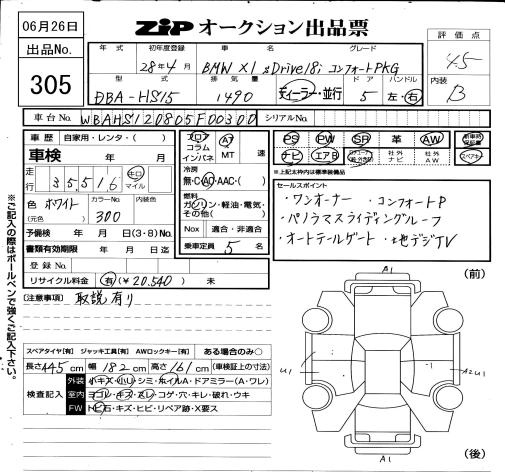 06月26日
ZIP オークション出品票
出品No.
305
評価点
4.5
内装
B
年式 初年度登録 車名 グレード
28年4月 BMW X1 sDrive18i コンフォートPKG
型式 排気量 ドア ハンドル
DBA-HS15 1490 ディーラー・並行 5 左・右
車台No. WBAHS120805F00300 シリアルNo.
車歴 自家用・レンタ・( )
車検 年 月
走行 35,516 キロ マイル
色 ホワイト (元色) カラーNo. 300 内装色
予備検 年 月 日(3・8)No.
書類有効期限 年 月 日迄
登録No.
リサイクル料金 有(¥20.540) 未
フロア コラム インパネ AT MT 速
冷房 無・C・AC・AAC・( )
燃料 ガソリン・軽油・電気・その他( )
Nox 適合・非適合
乗車定員 5 名
PS PW SR 革 AW
ナビ エアB 社外ナビ 社外AW スペアキー
※上記太枠内は標準装備品
セールスポイント
・ワンオーナー ・コンフォートP
・パノラマスライディングルーフ
・オートテールゲート ・地デジTV
※ご記入の際はボールペンで強くご記入下さい。
[注意事項] 取説有り
スペアタイヤ[有] ジャッキ工具[有] AWロックキー[有] ある場合のみ○
長さ 445cm 幅 182cm 高さ 161cm (車検証上の寸法)
検査記入
外装 小キズ・小ヘコ・シミ・ホイルA・ドアミラー(A・ワレ)
室内 ヨゴレ・キズ・スレ・コゲ・穴・キレ・破れ・ウキ
FW トビ石・キズ・ヒビ・リペア跡・X要ス
(前)
A1
U1
A2U1
A1
(後)